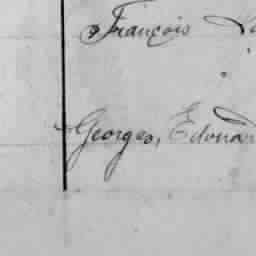 François
Georges, Edouar